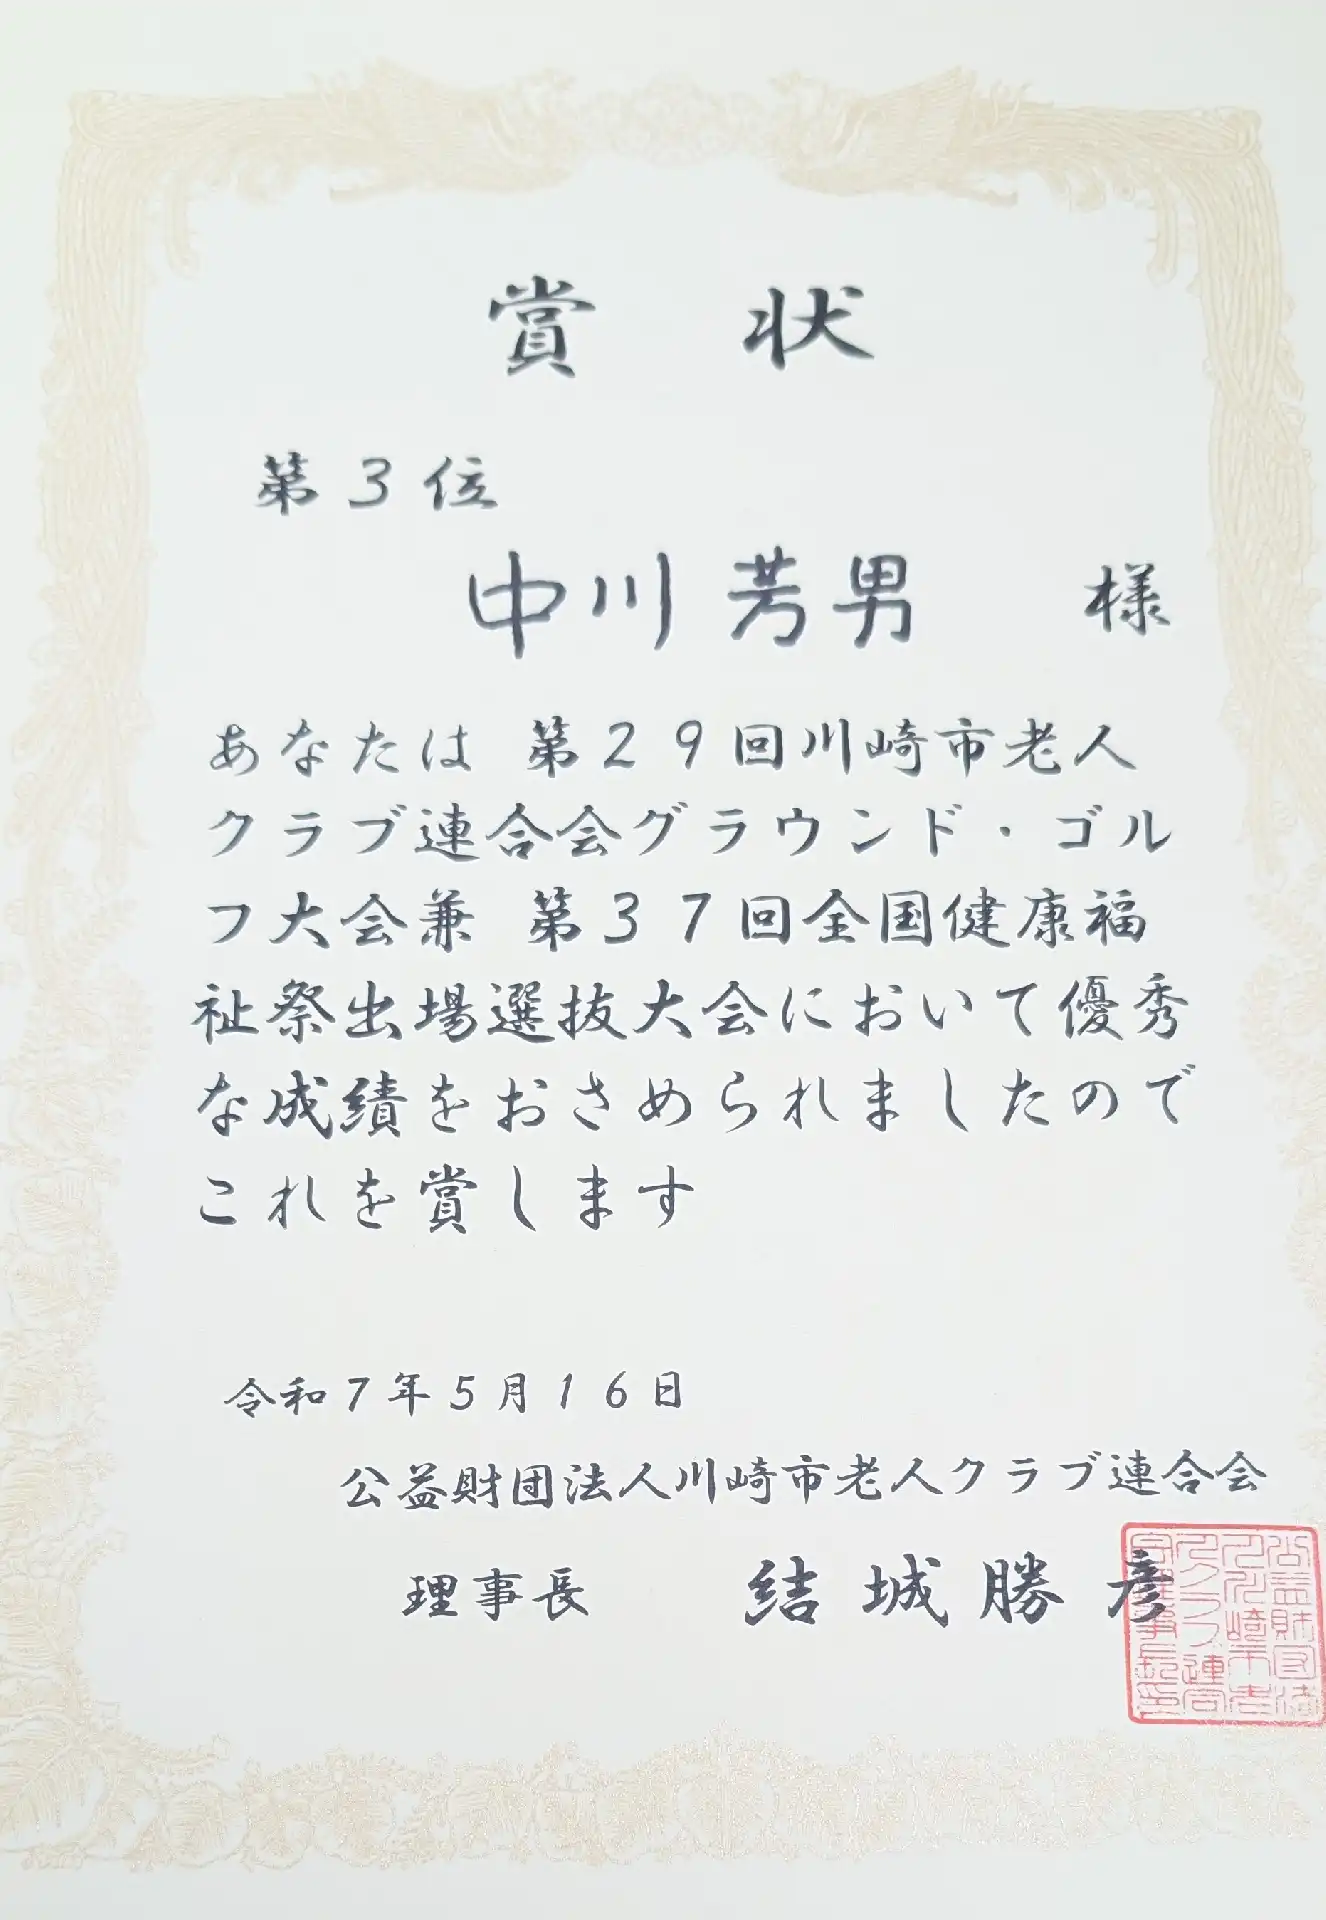 賞状
第３位
中川芳男 様
あなたは 第２９回川崎市老人
クラブ連合会グラウンド・ゴル
フ大会兼 第３７回全国健康福
祉祭出場選抜大会において優秀
な成績をおさめられましたので
これを賞します
令和７年５月１６日
公益財団法人川崎市老人クラブ連合会
理事長 結城勝彦